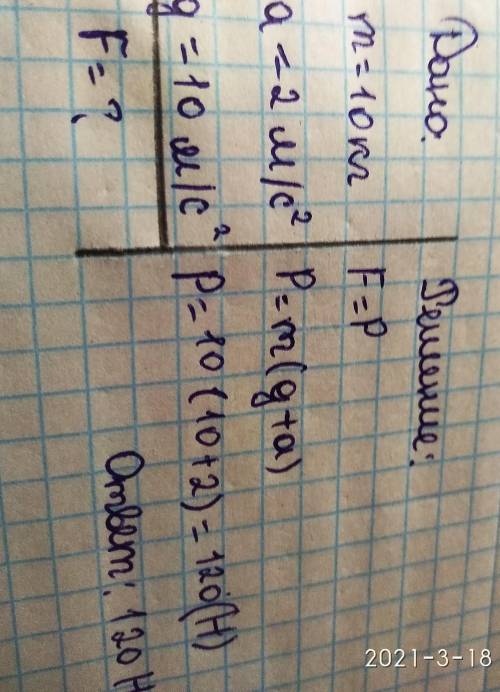 Дано:
m = 10 кг
a = 2 м/с²
g = 10 м/с²
F = ?
Решение:
F = P
P = m(g+a)
P = 10 (10+2) = 120 (Н)
Ответ: 120 Н
2021-3-18